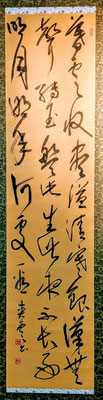 暮雲收盡溢清寒銀漢無
聲轉玉盤此生此夜不長好
明月明年何處看 書